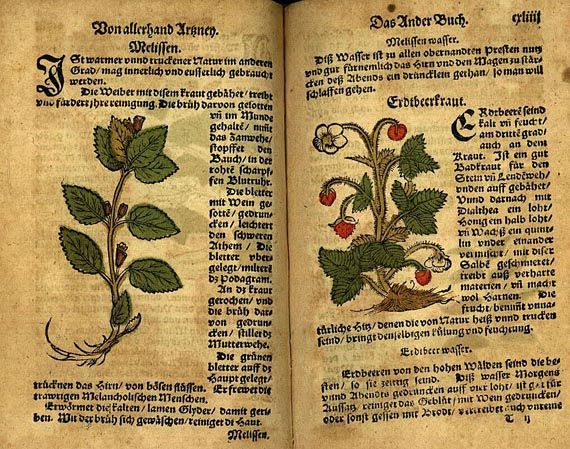 Von allerhand Artzney.
Melissen.
Ist warmer vnnd truckener Natur im anderen
Grad / mag innerlich vnd eusserlich gebraucht
werden.
Die Weiber mit disem kraut gebähet / treibt
vnd fürdert jhre reinigung. Die brüh darvon gesotten
vñ im Munde
gehaltẽ / nim̃t
das Zanwehe /
stopffet den
Bauch / in der
rohtẽ scharpf-
fen Blutruhr.
Die bletter
mit Wein ge-
sottẽ / gedrun-
cken / leichtert
den schweren
Athem / Die
bletter vber-
gelegt / milterẽ
dz Podagram.
An dz kraut
gerochen / vnd
die brüh dar-
von gedrun-
cken / stillet dz
Mutterwehe.
Die grünen
bletter auff dz
Haupt gelegt /
trücknen das Hirn / von bösen flüssen. Erfrewet die
trawrigen Melancholischen Menschen.
Erwörmet die kalten / lamen Glyder / damit geri-
ben. Mit der brüh sich gewäschen / reiniget di Haut.
Melissen.
Das Ander Buch.
cxliiij
Melissen wasser.
Diß Wasser ist zu allen obernandten Presten nutz
vnd gut / fürnemlich das Hirn vnd den Magen zu stär-
cken / deß Abends ein drüncklein gethan / so man will
schlaffen gehen.
Erdtbeerkraut.
Erdtbeerẽ seind
kalt vñ feucht /
am drittẽ grad /
auch an dem
Kraut. Ist ein gut
Badkraut für den
Stein vñ Lendẽweh /
vnden auff gebähet /
Vnnd darnach mit
Dialthea ein loht /
Honig ein halb loht /
vñ Wachß ein quint-
lin vnder einander
vermischt / mit diser
Salbẽ geschmiert /
treibt auß verharte
materien / vñ macht
wol Harnen. Die
frucht / benim̃t vnna-
türliche Hitz / denen die von Natur heiß vnnd trucken
seind / bringt denselbigen külung vnd feuchtung.
Erdtbeer wasser.
Erdtbeeren von den hohen Wälden seind die be-
sten / so sie zeitig seind. Diß wasser Morgens
vnnd Abends gedruncken auff vier loht / ist gut für
Aussatz / reiniget das Geblüt / mit Wein gedruncken /
oder sonst gessen mit Brodt / vertreibet auch vnreine
T ij